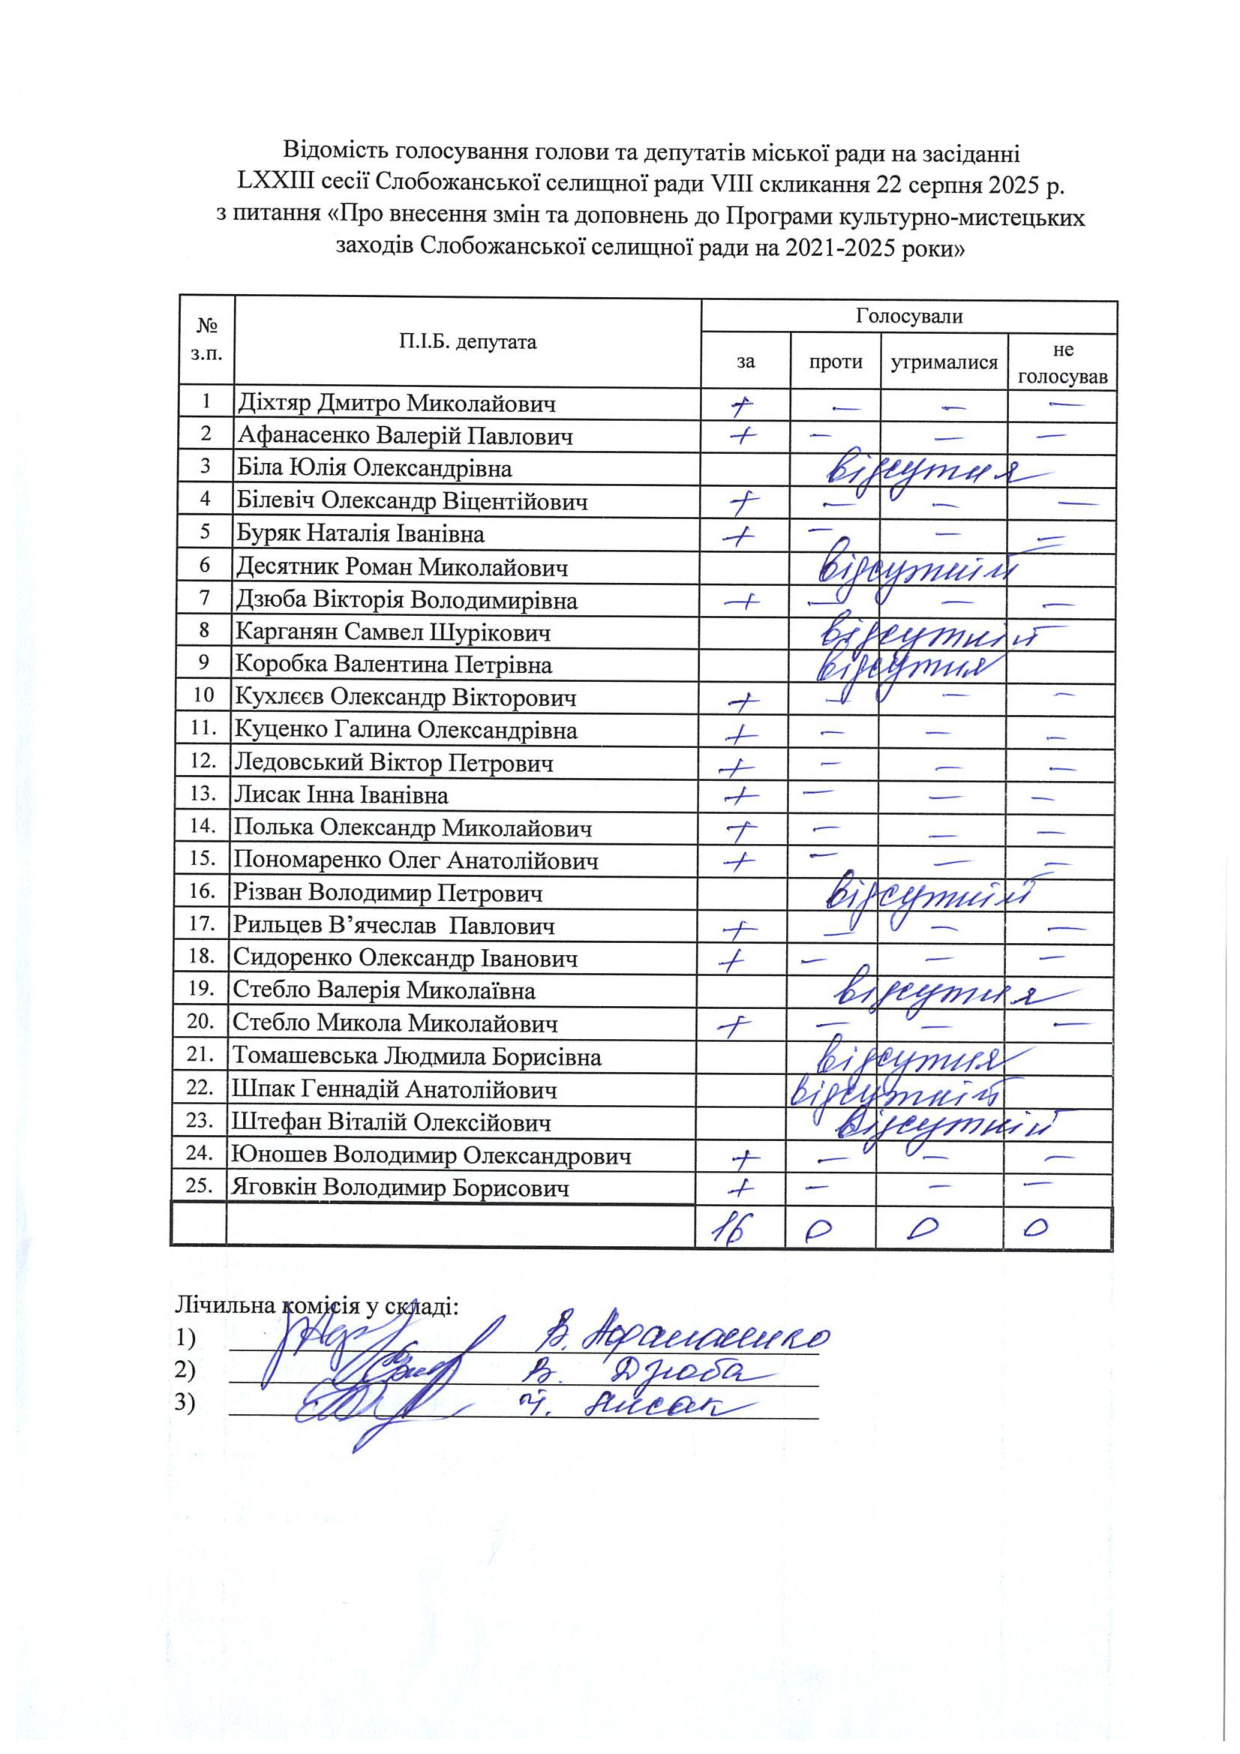 Відомість голосування голови та депутатів міської ради на засіданні
LXXIII сесії Слобожанської селищної ради VIII скликання 22 серпня 2025 р.
з питання «Про внесення змін та доповнень до Програми культурно-мистецьких
заходів Слобожанської селищної ради на 2021-2025 роки»
№ з.п. П.І.Б. депутата Голосували
за проти утрималися не голосував
1 Діхтяр Дмитро Миколайович + — — —
2 Афанасенко Валерій Павлович + — — —
3 Біла Юлія Олександрівна відсутня
4 Білевіч Олександр Віцентійович + — — —
5 Буряк Наталія Іванівна + — — —
6 Десятник Роман Миколайович відсутній
7 Дзюба Вікторія Володимирівна + — — —
8 Карганян Самвел Шурікович відсутній
9 Коробка Валентина Петрівна відсутня
10 Кухлєєв Олександр Вікторович + — — —
11. Куценко Галина Олександрівна + — — —
12. Ледовський Віктор Петрович + — — —
13. Лисак Інна Іванівна + — — —
14. Полька Олександр Миколайович + — — —
15. Пономаренко Олег Анатолійович + — — —
16. Різван Володимир Петрович відсутній
17. Рильцев В’ячеслав Павлович + — — —
18. Сидоренко Олександр Іванович + — — —
19. Стебло Валерія Миколаївна відсутня
20. Стебло Микола Миколайович + — — —
21. Томашевська Людмила Борисівна відсутня
22. Шпак Геннадій Анатолійович відсутній
23. Штефан Віталій Олексійович відсутній
24. Юношев Володимир Олександрович + — — —
25. Яговкін Володимир Борисович + — — —
16 0 0 0
Лічильна комісія у складі:
1) В. Афанасенко
2) В. Дзюба
3) І. Лисак